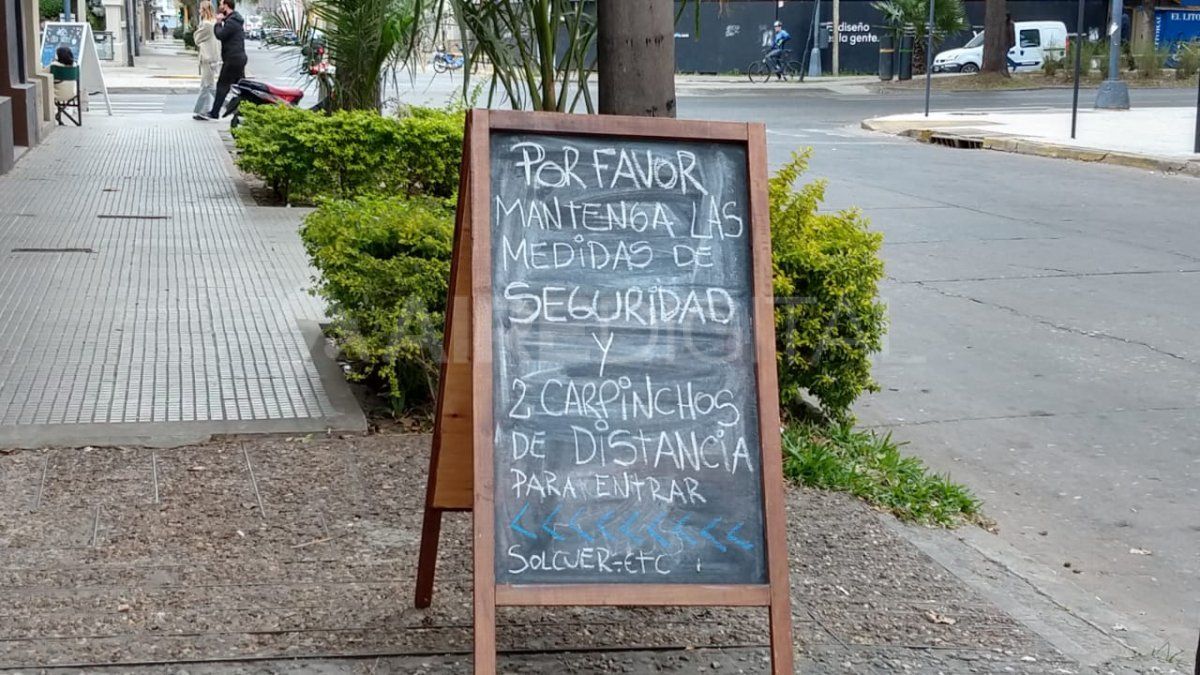 POR FAVOR
MANTENGA LAS
MEDIDAS DE
SEGURIDAD
Y
2 CARPINCHOS
DE DISTANCIA
PARA ENTRAR
SOLCUER-ETC
diseño
la gente.
EL LITORAL
AIREDIGITAL